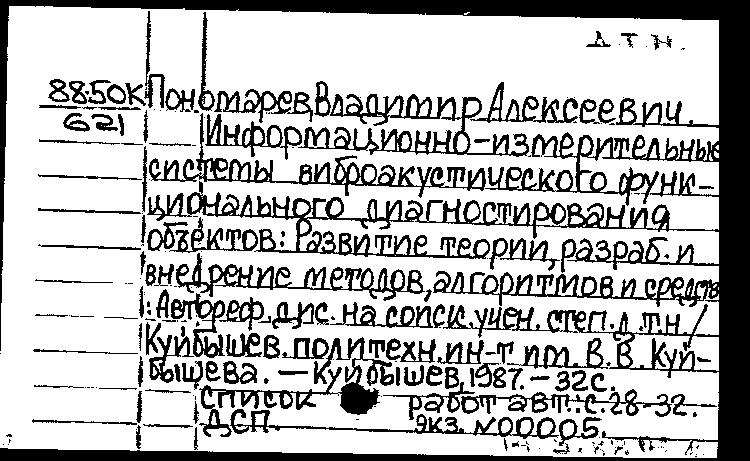 Д Т Н.
88.50К Пономарев, Владимир Алексеевич.
621 Информационно-измерительные
системы виброакустического функ-
ционального диагностирования
объектов: Развитие теории, разраб. и
внедрение методов, алгоритмов и средств
: Автореф. дис. на соиск. учен. степ. д.т.н /
Куйбышев. политехн. ин-т им. В.В. Куй-
бышева. — Куйбышев, 1987. — 32с.
список работ авт.: с. 28-32.
ДСП. экз. N00005.